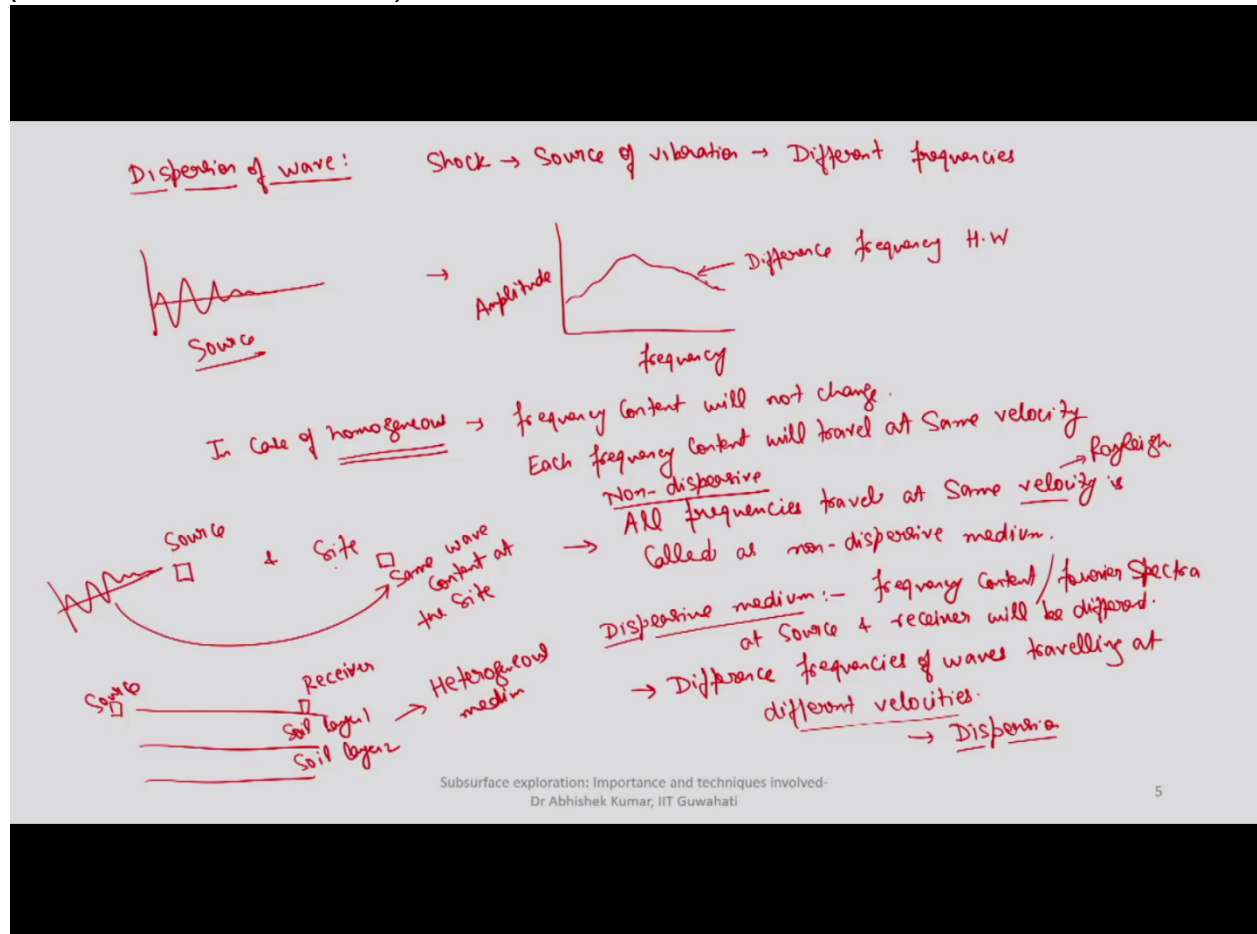 Dispersion of wave:
Shock → Source of vibration → Different frequencies
Source
→
Amplitude
frequency
Difference frequency H.W
In Case of homogeneous → frequency Content will not change.
Each frequency Content will travel at Same velocity
Non-dispersive
→ Rayleigh
Source & Site
Same wave
Content at
the Site
→ All frequencies travel at Same velocity is
Called as non-dispersive medium.
Dispersive medium:- frequency Content/fourier Spectra
at Source & receiver will be different.
→ Difference frequencies of waves travelling at
different velocities.
→ Dispersion
Source
Receiver
Soil layer1
Soil layer2
→ Heterogeneous
medium
Subsurface exploration: Importance and techniques involved-
Dr Abhishek Kumar, IIT Guwahati
5